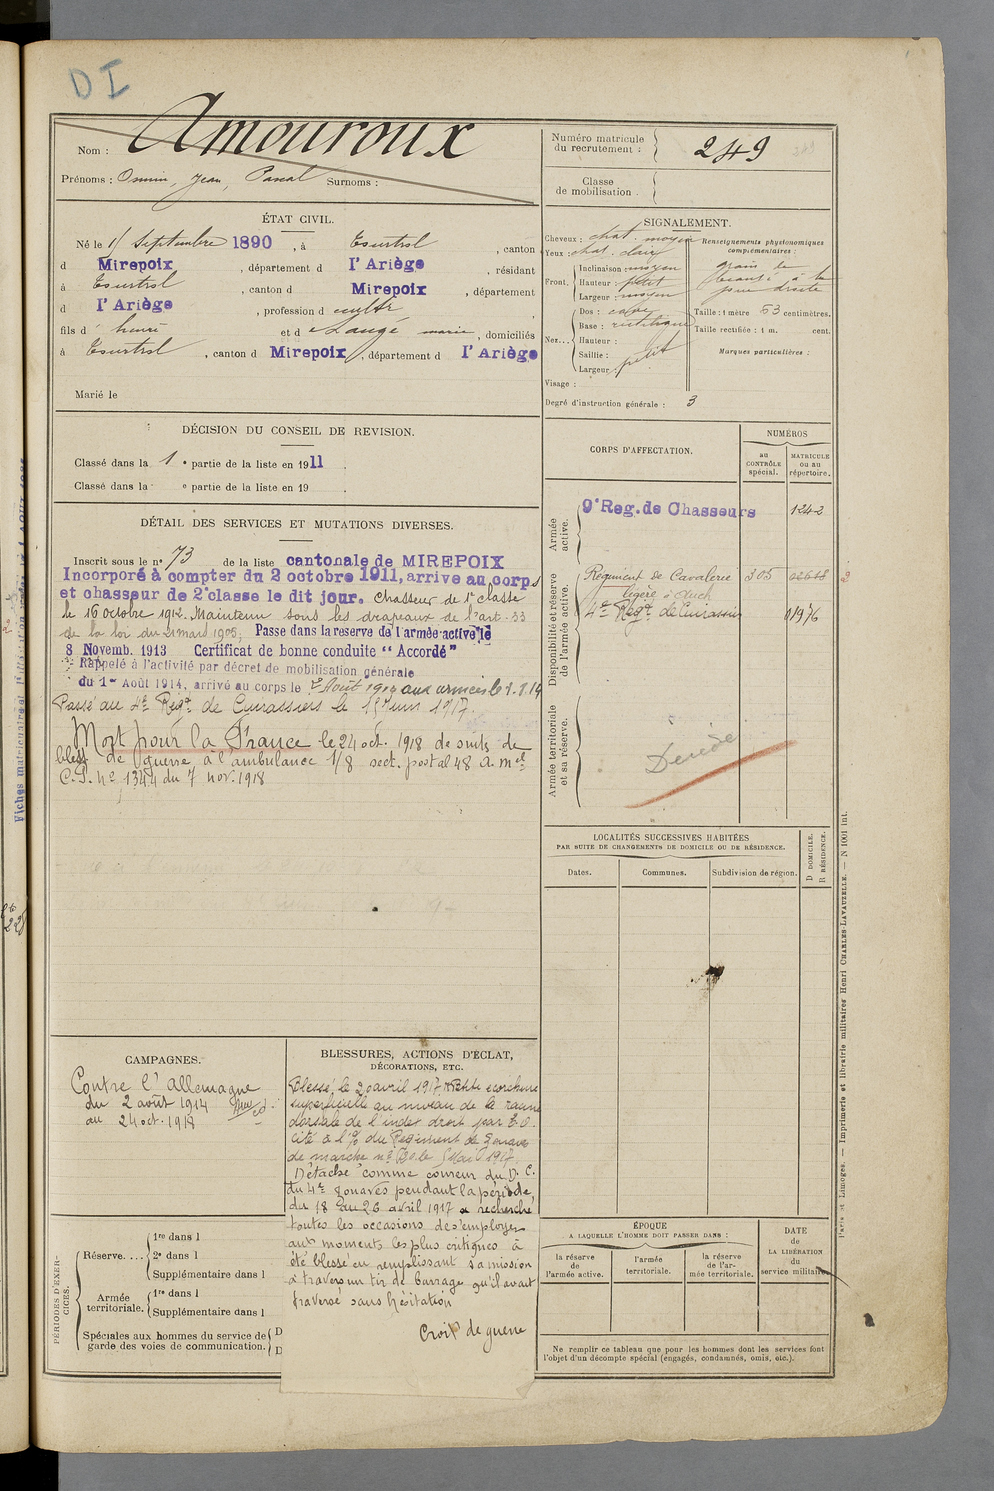 DI
Nom : Amouroux
Prénoms : Osmin, Jean, Pascal Surnoms :
Numéro matricule du recrutement : 249
Classe de mobilisation .
ÉTAT CIVIL.
Né le 1 Septembre 1890 , à Tourtrol , canton
d Mirepoix , département d l'Ariège , résidant
à Tourtrol , canton d Mirepoix , département
d l'Ariège , profession d cultr
fils d' henri et d e Laugé marie , domiciliés
à Tourtrol , canton d Mirepoix , département d l'Ariège
Marié le
SIGNALEMENT.
Cheveux : chat. moyen
Yeux : chat. clair
Front. Inclinaison : moyen
Hauteur : petit
Largeur : moyen
Nez... Dos : cave
Base :
Hauteur :
Saillie :
Largeur petit
Visage :
Degré d'instruction générale : 3
Renseignements physionomiques complémentaires :
grain de
beauté à la
joue droite
Taille : 1 mètre 53 centimètres.
Taille rectifiée : 1 m. cent.
Marques particulières :
DÉCISION DU CONSEIL DE REVISION.
Classé dans la 1 e partie de la liste en 1911 .
Classé dans la e partie de la liste en 19 .
DÉTAIL DES SERVICES ET MUTATIONS DIVERSES.
Inscrit sous le n° 73 de la liste cantonale de MIREPOIX
Incorporé à compter du 2 octobre 1911, arrive au corps
et chasseur de 2e classe le dit jour. Chasseur de 1e classe
le 16 octobre 1912. Maintenu sous les drapeaux de l'art. 33
de la loi du 21 mars 1905, Passe dans la reserve de l'armée active le
8 Novemb. 1913 Certificat de bonne conduite “ Accordé ”
Rappelé à l'activité par décret de mobilisation générale
du 1er Août 1914, arrivé au corps le Août 1914 aux armées le
Passé au 4e Régt de Cuirassiers le 1917.
Mort pour la France le 24 oct. 1918 de suites de
bless de guerre à l'ambulance 1/8 sect. postal 48 A. mel
C.P. No 1344 du 7 nov. 1918
CORPS D'AFFECTATION.
NUMÉROS
au CONTRÔLE spécial.
MATRICULE ou au répertoire.
Armée active.
9e Reg. de Chasseurs 1242
Disponibilité et réserve de l'armée active.
Régiment de Cavalerie 305
légère à Auch
4e Régt de Cuirassiers 01976
Armée territoriale et sa réserve.
Décédé
LOCALITÉS SUCCESSIVES HABITÉES
PAR SUITE DE CHANGEMENTS DE DOMICILE OU DE RÉSIDENCE.
D DOMICILE.
R RÉSIDENCE.
Dates. Communes. Subdivision de région.
CAMPAGNES.
Contre l'Allemagne
du 2 août 1914
au 24 oct. 1918
BLESSURES, ACTIONS D'ÉCLAT,
DÉCORATIONS, ETC.
Blessé le 20 avril 1917 Petite écorchure
superficielle au niveau de la racine
dorsale de l'index droit par E.O.
Cité à l'O/ du Régiment de Zouaves
de marche no le Mai 1917.
Détaché comme coureur du D. C.
du 4e zouaves pendant la période
du 18 au 26 avril 1917 a recherché
toutes les occasions de s'employer
aux moments les plus critiques à
été blessé en remplissant sa mission
à travers un tir de barrage qu'il avait
traversé sans hésitation
Croix de guerre
PÉRIODES D'EXERCICES.
Réserve.... 1re dans l
2e dans l
Supplémentaire dans l
Armée territoriale. 1re dans l
Supplémentaire dans l
Spéciales aux hommes du service de garde des voies de communication. D
D
ÉPOQUE
A LAQUELLE L'HOMME DOIT PASSER DANS :
la réserve de l'armée active.
l'armée territoriale.
la réserve de l'armée territoriale.
DATE DE LA LIBÉRATION du service militaire.
Ne remplir ce tableau que pour les hommes dont les services font
l'objet d'un décompte spécial (engagés, condamnés, omis, etc.).
Paris et Limoges. — Imprimerie et librairie militaires Henri CHARLES-LAVAUZELLE. — N 1001 int.